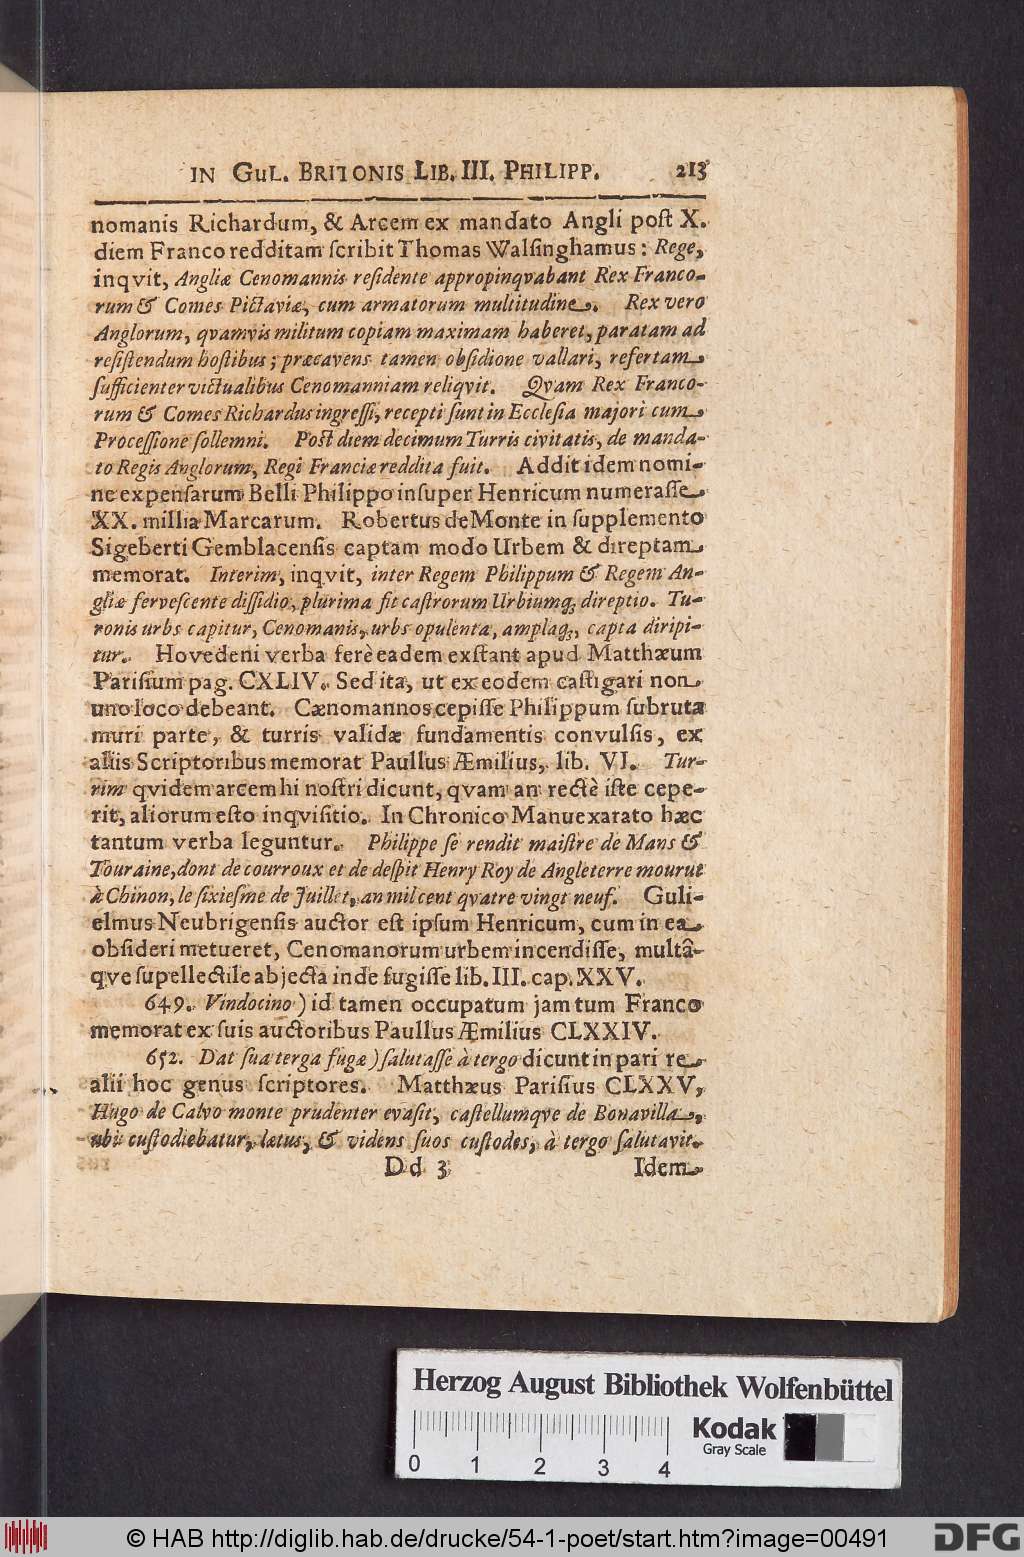 IN GUL. BRITONIS LIB. III. PHILIPP. 213
nomanis Richardum, & Arcem ex mandato Angli poſt X.
diem Franco redditam ſcribit Thomas Walſinghamus: Rege,
inqvit, Angliæ Cenomannis reſidente appropinqvabant Rex Franco-
rum & Comes Pictaviæ, cum armatorum multitudine. Rex vero
Anglorum, qvamvis militum copiam maximam haberet, paratam ad
reſiſtendum hoſtibus; præcavens tamen obſidione vallari, refertam
ſufficienter victualibus Cenomanniam reliqvit. Qvam Rex Franco-
rum & Comes Richardus ingreſſi, recepti ſunt in Eccleſia majori cum
Proceſſione ſollemni. Poſt diem decimum Turris civitatis, de manda-
to Regis Anglorum, Regi Franciæ reddita fuit. Addit idem nomi-
ne expenſarum Belli Philippo inſuper Henricum numeraſſe
XX. millia Marcarum. Robertus de Monte in ſupplemento
Sigeberti Gemblacenſis captam modo Urbem & direptam
memorat. Interim, inqvit, inter Regem Philippum & Regem An-
gliæ ferveſcente diſſidio, plurima fit caſtrorum Urbiumq; direptio. Tu-
ronis urbs capitur, Cenomanis, urbs opulenta, amplaq;, capta diripi-
tur. Hovedeni verba ferè eadem exſtant apud Matthæum
Pariſium pag. CXLIV. Sed ita, ut ex eodem caſtigari non
uno loco debeant. Cænomannos cepiſſe Philippum ſubruta
muri parte, & turris validæ fundamentis convulſis, ex
aliis Scriptoribus memorat Paullus Æmilius, lib. VI. Tur-
rim qvidem arcem hi noſtri dicunt, qvam an rectè iſte cepe-
rit, aliorum eſto inqviſitio. In Chronico Manuexarato hæc
tantum verba leguntur. Philippe ſe rendit maiſtre de Mans &
Touraine, dont de courroux et de deſpit Henry Roy de Angleterre mourut
à Chinon, le ſixieſme de Juillet, an mil cent qvatre vingt neuf. Guli-
elmus Neubrigenſis auctor eſt ipſum Henricum, cum in ea
obſideri metueret, Cenomanorum urbem incendiſſe, multâ-
qve ſupellectile abjecta inde fugiſſe lib. III. cap. XXV.
649. Vindocino) id tamen occupatum jam tum Franco
memorat ex ſuis auctoribus Paullus Æmilius CLXXIV.
652. Dat ſua terga fugæ) ſalutaſſe à tergo dicunt in pari re
alii hoc genus ſcriptores. Matthæus Pariſius CLXXV,
Hugo de Calvo monte prudenter evaſit, caſtellumqve de Bonavilla,
ubi cuſtodiebatur, lætus, & videns ſuos cuſtodes, à tergo ſalutavit.
Dd 3 Idem
Herzog August Bibliothek Wolfenbüttel
0 1 2 3 4
Kodak
Gray Scale
© HAB http://diglib.hab.de/drucke/54-1-poet/start.htm?image=00491
DFG